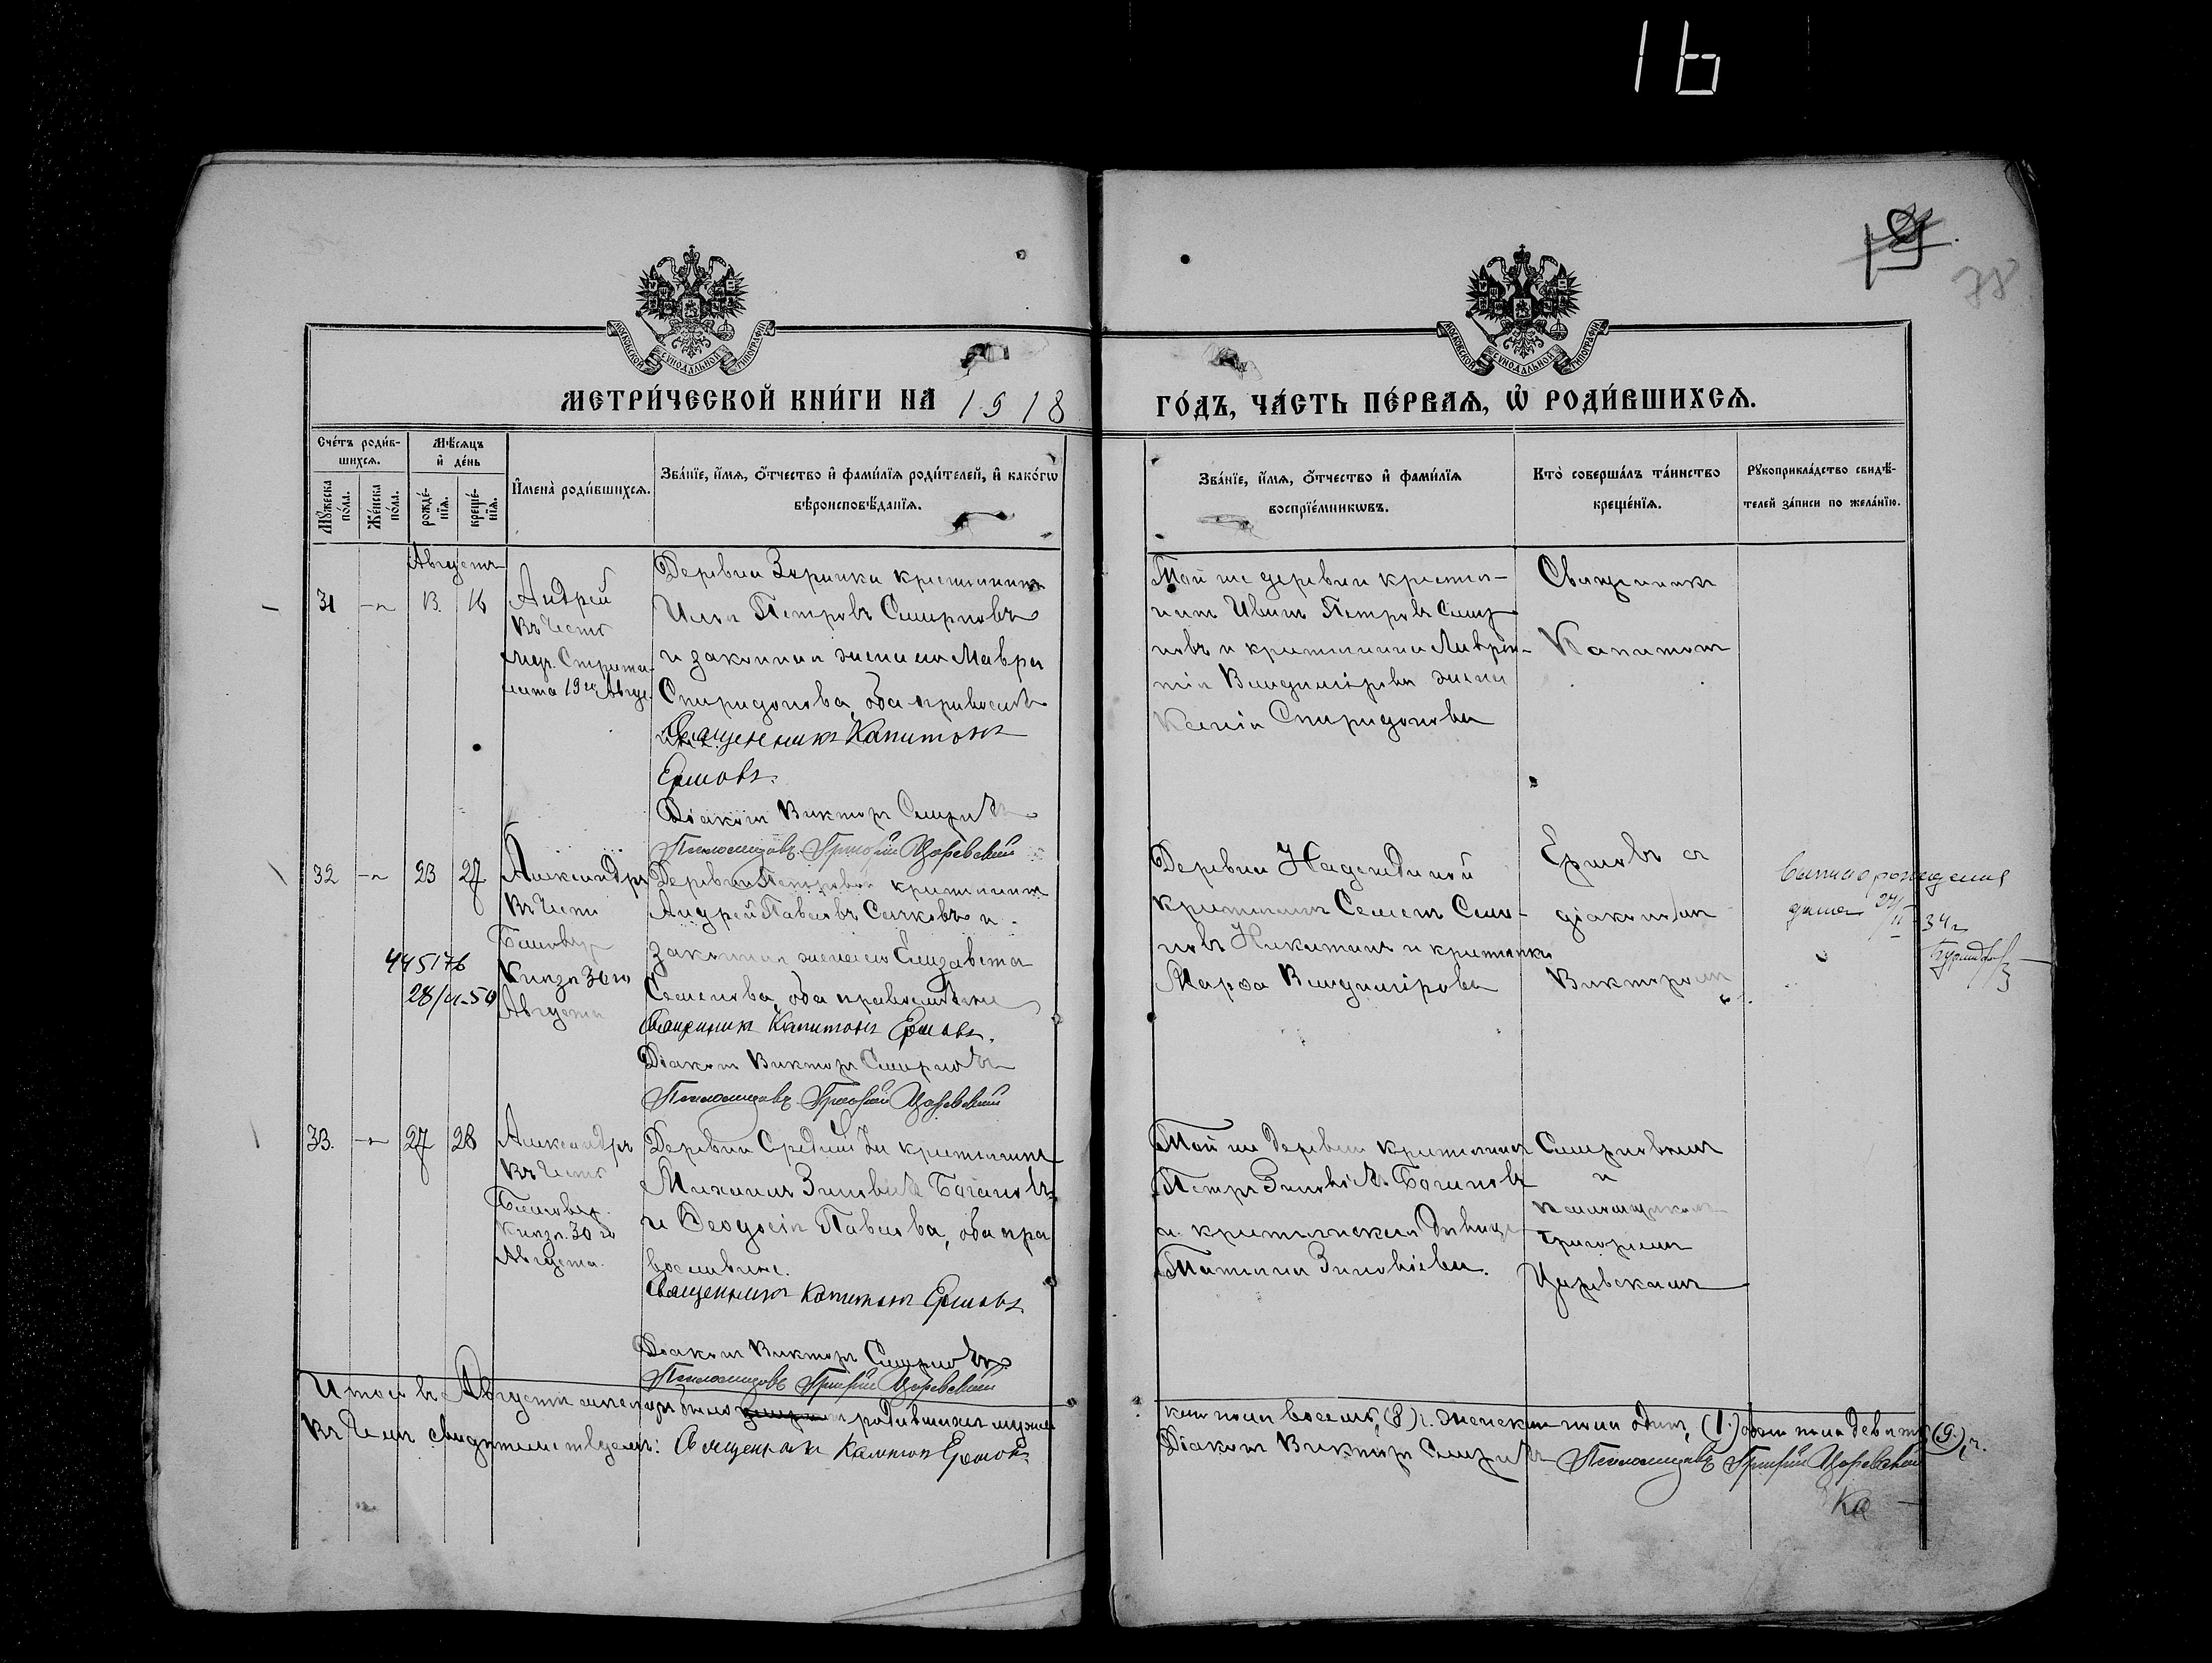 16
19
78
МОСКОВСКОЙ СѴНОДАЛЬНОЙ ТИПОГРАФІИ
МОСКОВСКОЙ СѴНОДАЛЬНОЙ ТИПОГРАФІИ
МЕТРИ́ЧЕСКОЙ КНИ́ГИ НА 1918
ГО́ДЪ, ЧА́СТЬ ПЕ́РВАѦ, Ѡ҆ РОДИ́ВШИХСѦ.
Сче́тъ роди́в-
шихсѧ.
Мꙋ́жеска по́ла.
Же́нска по́ла.
Мѣ́сѧцъ
и҆ де́нь
рожде́-
нїѧ.
креще́-
нїѧ.
И҆мена̀ роди́вшихсѧ.
Зва́нїе, и҆́мѧ, ѻ҆́тчество и҆ фами́лїѧ роди́телей, и҆ како́гѡ
вѣроисповѣ́данїѧ.
Зва́нїе, и҆́мѧ, ѻ҆́тчество и҆ фами́лїѧ
воспрїе́мникѡвъ.
Кто̀ соверша́лъ та́инство
креще́нїѧ.
Рꙋкоприкла́дство свидѣ́-
телей за́писи по жела́нїю.
Августъ
31 13. 16
Андрей
Въ честь
муч. Стратилата 19го Авгус.
Деревни крестьянинъ
Илья Петровъ Смирновъ
и законная жена его Мавра
Спиридонова, оба православн.
Священникъ Капитонъ
Ермовъ.
Діаконъ Виктор Смирновъ
Псаломщикъ Григорій Царевскій
Той же деревни крестья-
нинъ Иванъ Петровъ Смир
новъ и крестьянина Лаврен-
тія Владимірова жена
Ксенія Спиридонова
Священникъ
Капитонъ
32 23 27
Александръ
Въ честь
Благовѣр
Князя 30го
Августа
445176
28/II-50
Деревни крестьянинъ
Андрей Павловъ Сачковъ и
законная жена его Елизавета
Семенова, оба православные
Священникъ Капитонъ Ермовъ.
Діаконъ Викторъ Смирновъ
Псаломщикъ Григорій Царевскій
Деревни Надеждиной
крестьянинъ Семенъ Семе-
новъ Никитинъ и крестьянка
Марѳа Владимірова
Ермовъ съ
діакономъ
Викторомъ
рождения
27/II 34 г.
33. 27 28
Александръ
Въ честь
Благовѣр.
Князя 30 го
Августа.
Деревни крестьянинъ
Михаилъ Зиновьевъ Богановъ
и Ѳеодосія Павлова, оба пра
вославные.
Священникъ Капитонъ Ермовъ
Діаконъ Викторъ Смирновъ
Псаломщикъ Григорій Царевскій
Той же деревни крестьянинъ
Петръ Зиновіевъ Богановъ
и крестьянская дѣвица
Татьяна Зиновіева.
Смирновымъ
и
псаломщикомъ
Григоріемъ
Царевскимъ
Итого въ Августѣ мѣсяцѣ было родившихся мужес
каго пола восемь, (8) и женскаго пола одинъ, (1) обоего пола девять (9).
Въ чемъ свидѣтельствуемъ: Священникъ Капитонъ Ермовъ
Діаконъ Викторъ Смирновъ Псаломщикъ Григорій Царевскій